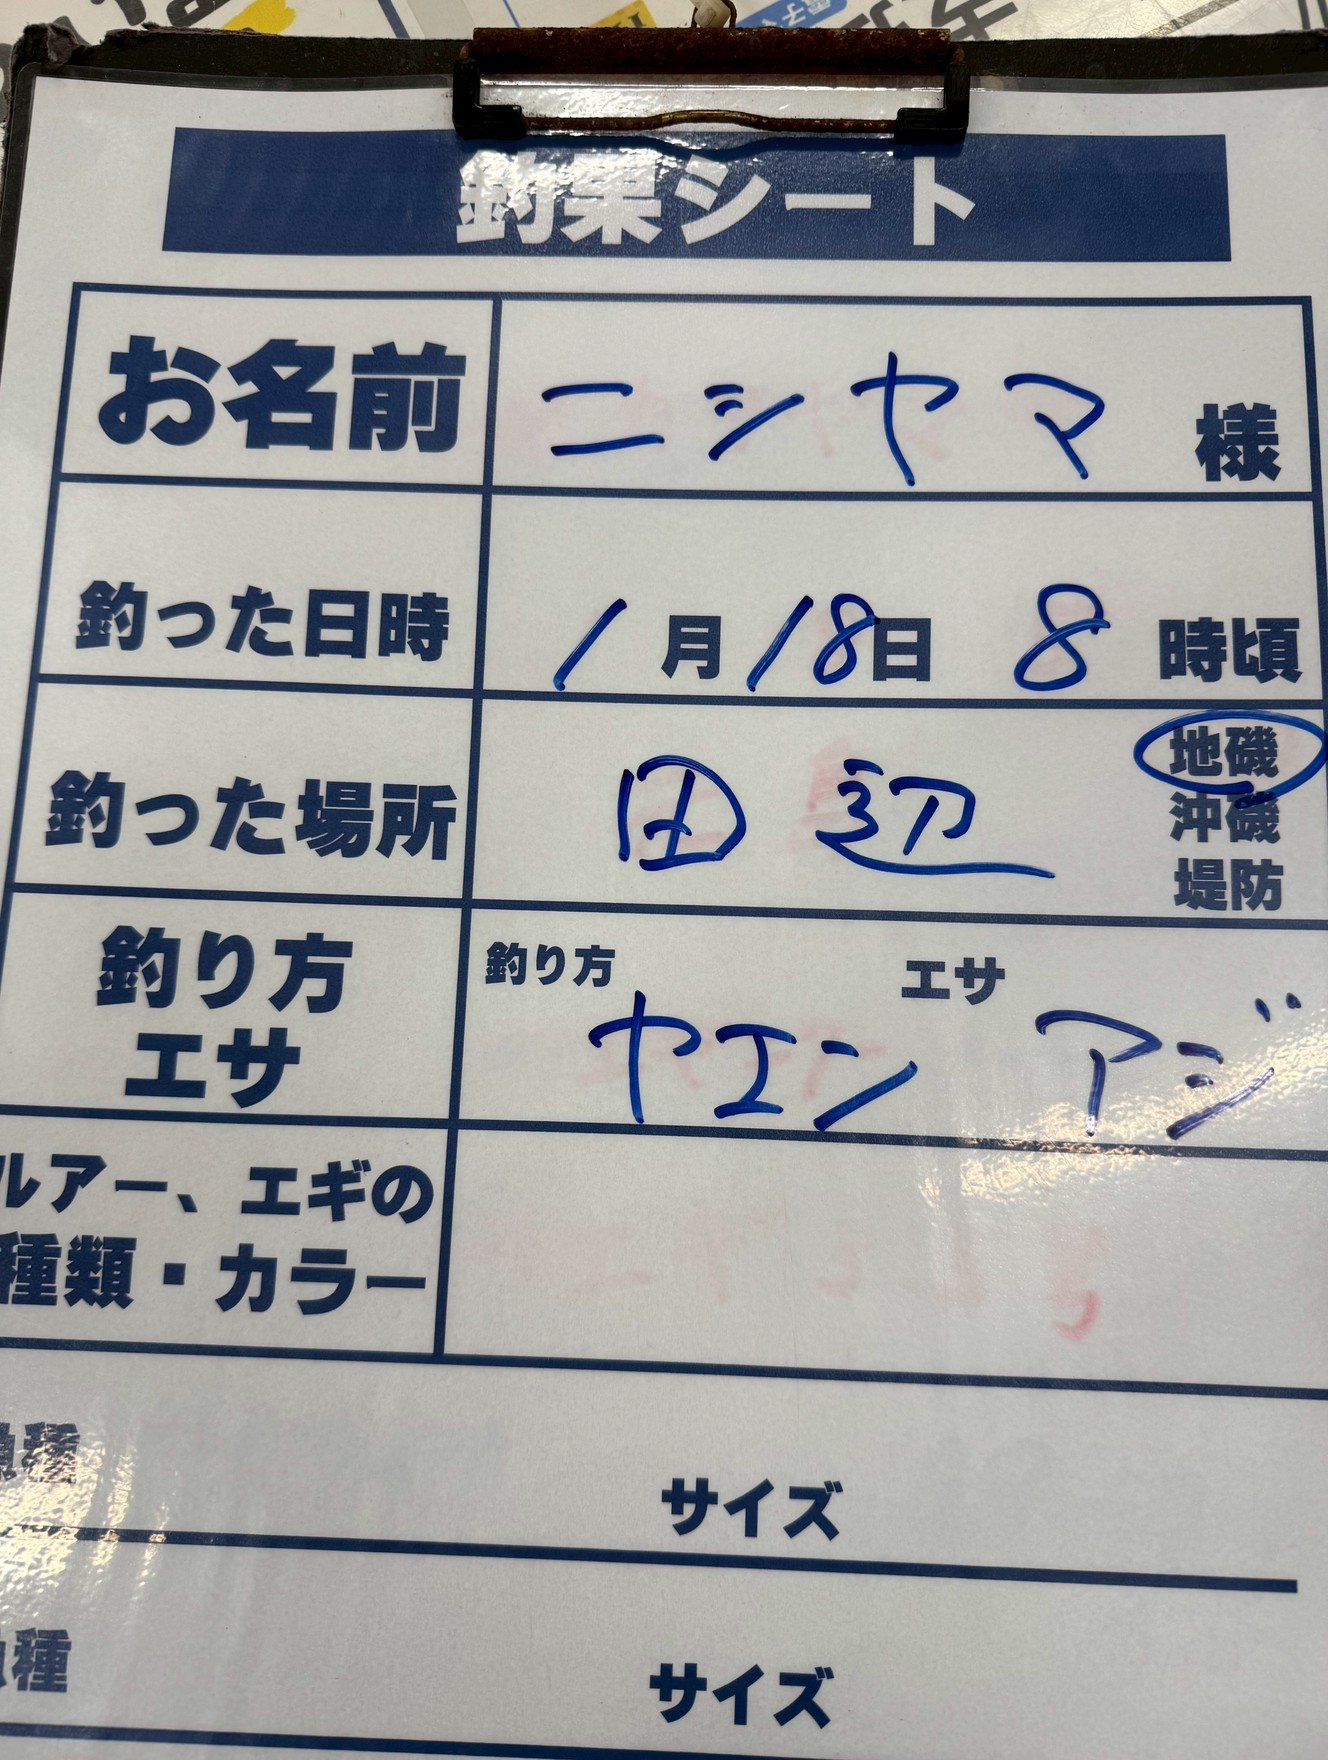 釣果シート
お名前 ニシヤマ 様
釣った日時 1月18日 8時頃
釣った場所 田辺 地磯
沖磯
堤防
釣り方 エサ
釣り方 ヤエン エサ アジ
ルアー、エギの
種類・カラー
魚種 サイズ
魚種 サイズ